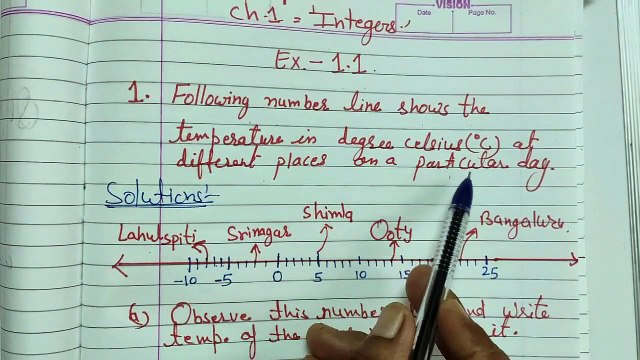 VISION
Date
Page No.
Ch.1 = Integers.
Ex. - 1.1.
1. Following number line shows the
temperature in degree celsius (°C) at
different places on a particular day.
Solutions:-
Lahulspiti Srinagar Shimla Ooty Bangaluru.
-10 -5 0 5 10 15 25
a) Observe this number and write
temp. of the it.